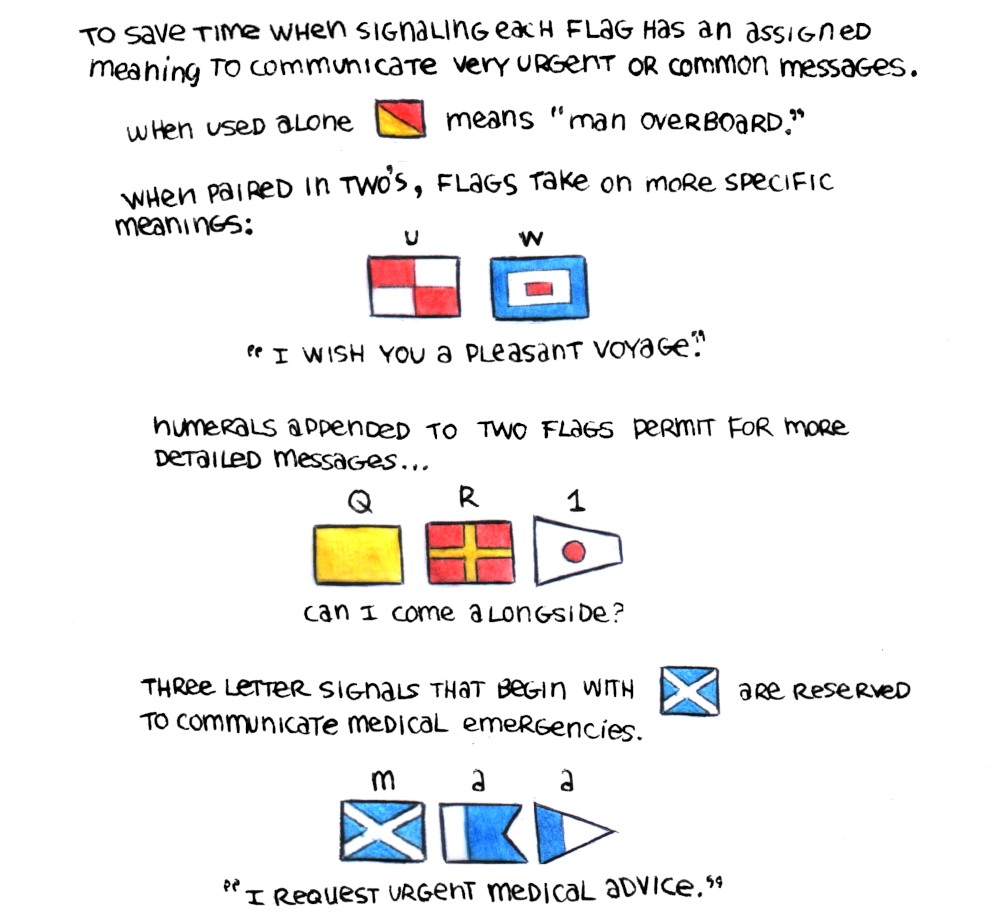 TO SAVE TIME WHEN SIGNALING EACH FLAG HAS AN ASSIGNED
MEANING TO COMMUNICATE VERY URGENT OR COMMON MESSAGES.
WHEN USED ALONE MEANS "MAN OVERBOARD."
WHEN PAIRED IN TWO'S, FLAGS TAKE ON MORE SPECIFIC
MEANINGS:
U W
"I WISH YOU A PLEASANT VOYAGE."
NUMERALS APPENDED TO TWO FLAGS PERMIT FOR MORE
DETAILED MESSAGES...
Q R 1
CAN I COME ALONGSIDE?
THREE LETTER SIGNALS THAT BEGIN WITH ARE RESERVED
TO COMMUNICATE MEDICAL EMERGENCIES.
M A A
"I REQUEST URGENT MEDICAL ADVICE."